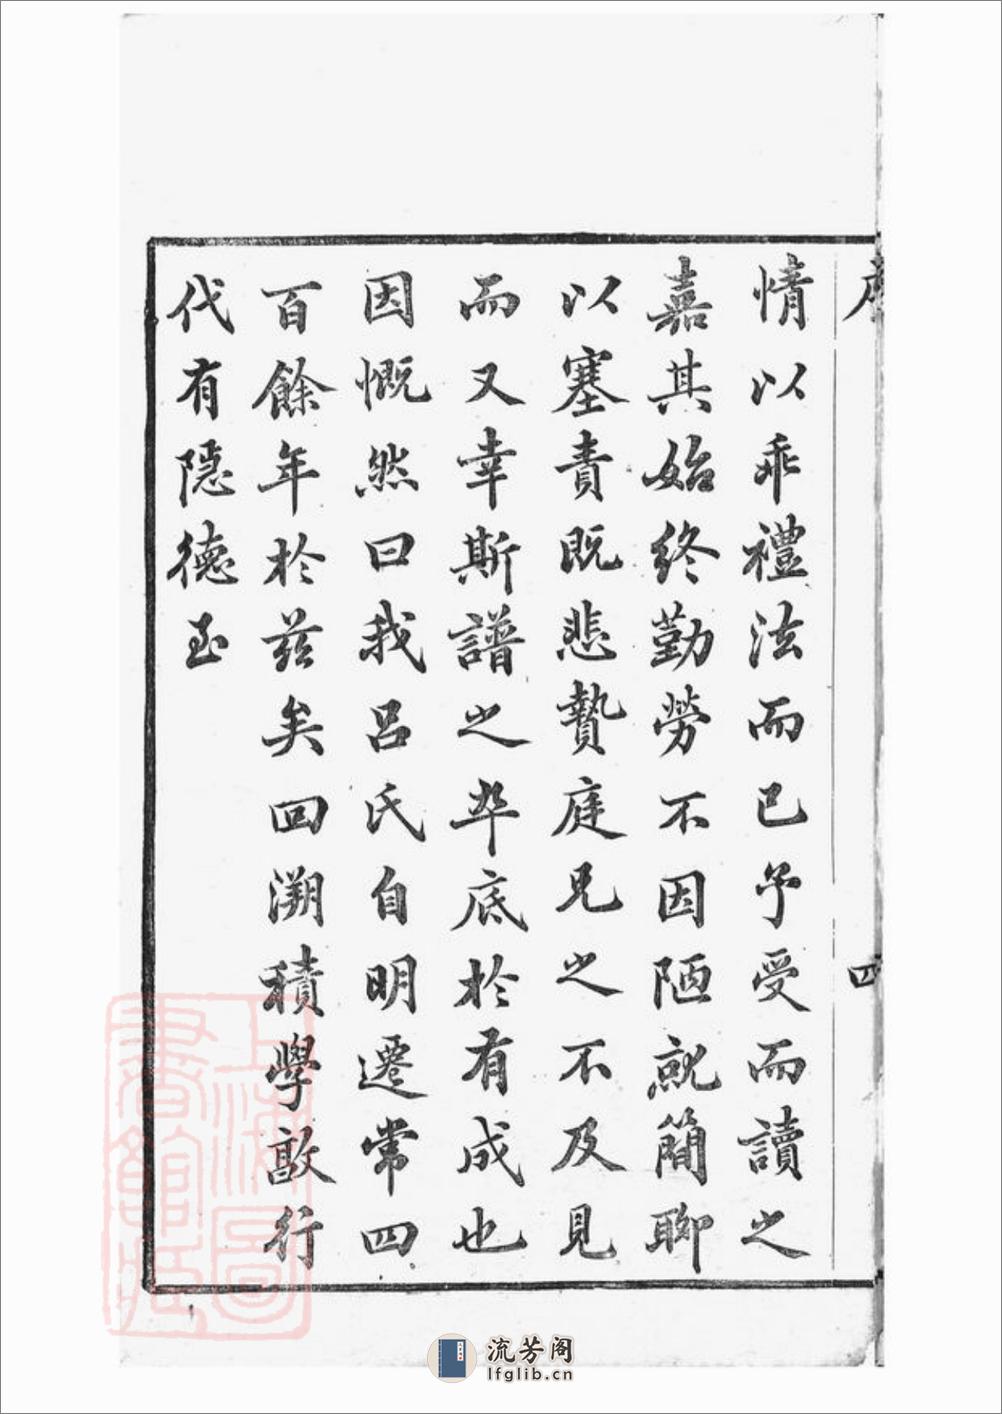 序
四
情以乖禮法而已予受而讀之
嘉其始終勤勞不因陋就簡聊
以塞責既悲贊庭兄之不及見
而又幸斯譜之卒底於有成也
因慨然曰我呂氏自明遷常四
百餘年於茲矣回溯積學敦行
代有隱德至
上海圖書館藏
流芳阁
lfglib.cn